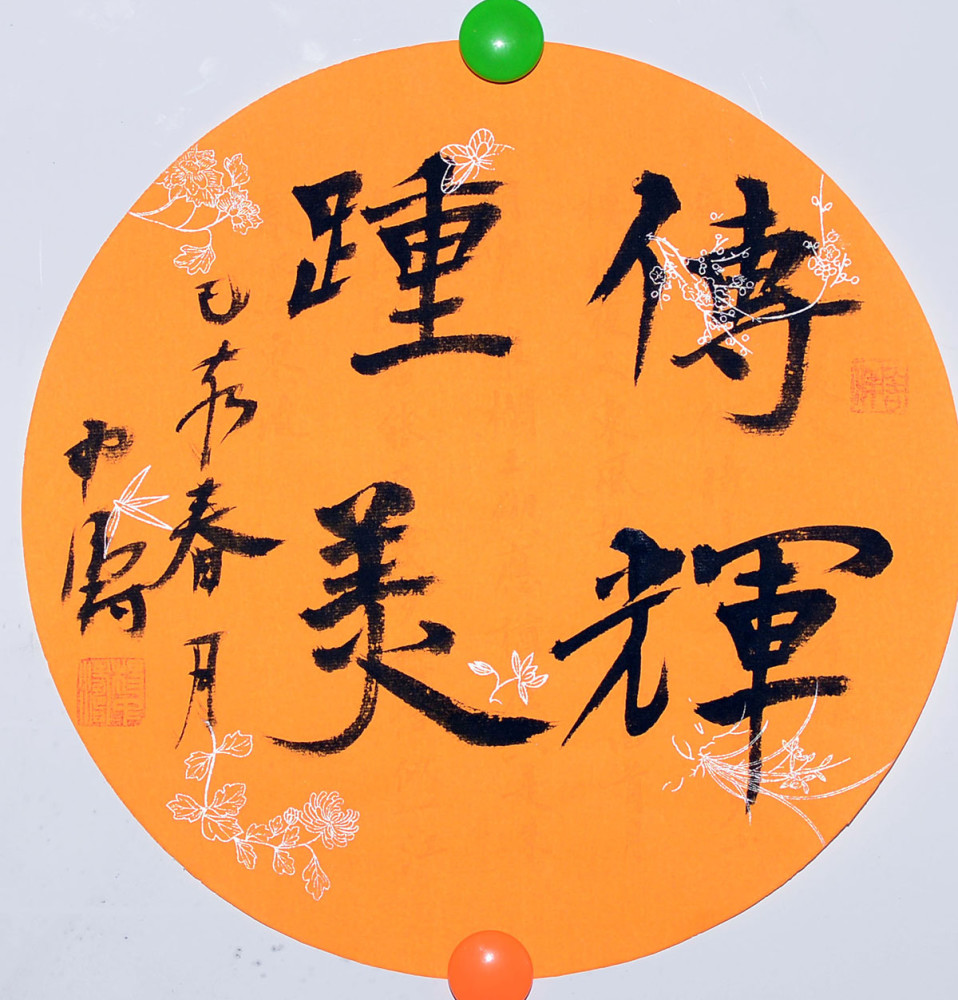 傳輝
踵美
己亥春月
中